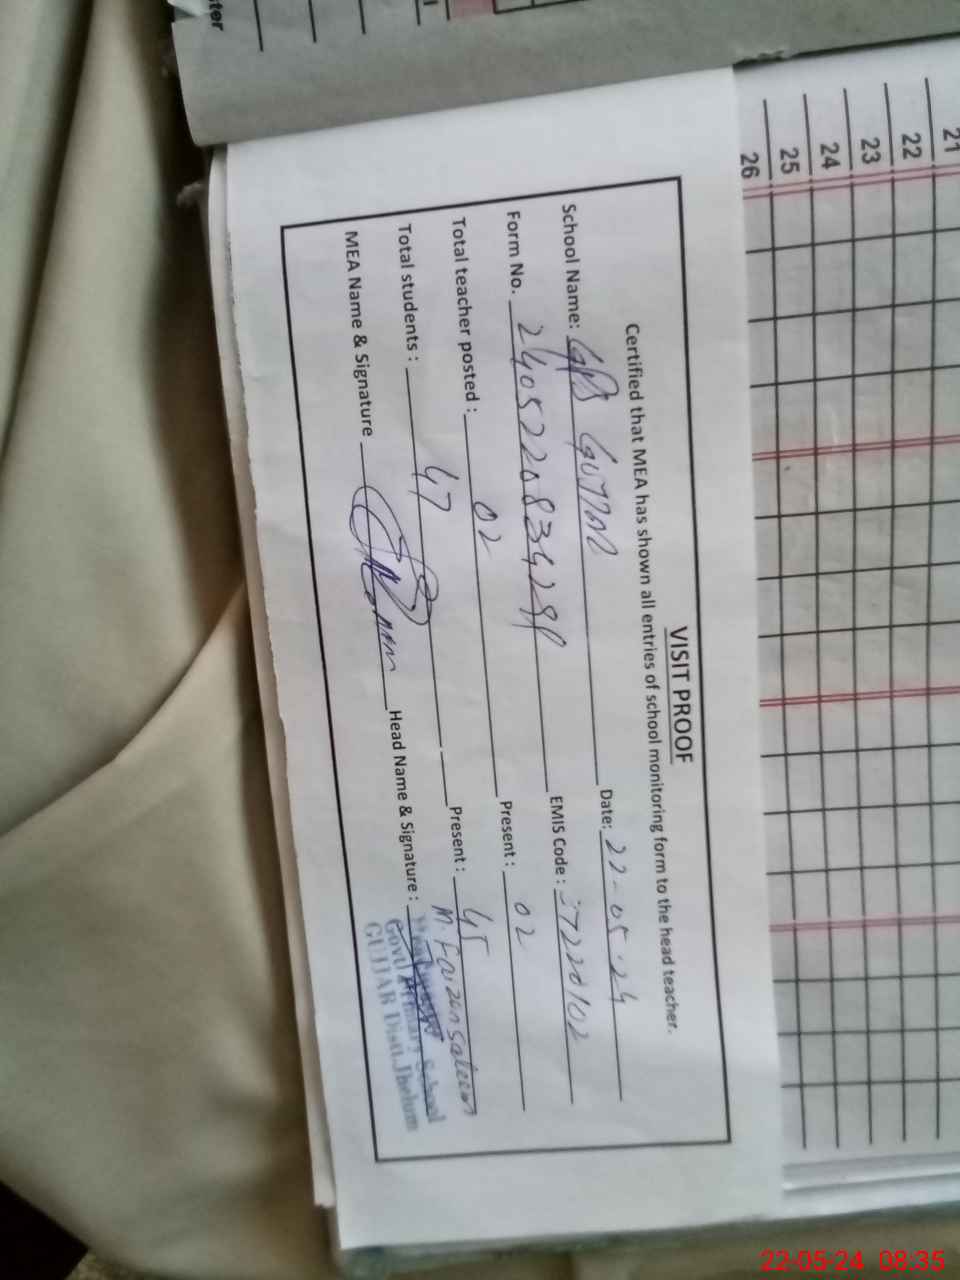 VISIT PROOF
Certified that MEA has shown all entries of school monitoring form to the head teacher.
School Name: GPS GUJJAR Date: 22-05-24
Form No. EMIS Code: 37220102
Total teacher posted: 02 Present: 02
Total students: 47 Present: 45
MEA Name & Signature Head Name & Signature: M. Faizan Saleem
Govt Primary School
GUJJAR Distt. Jhelum
21
22
23
24
25
26
22-05-24 08:35